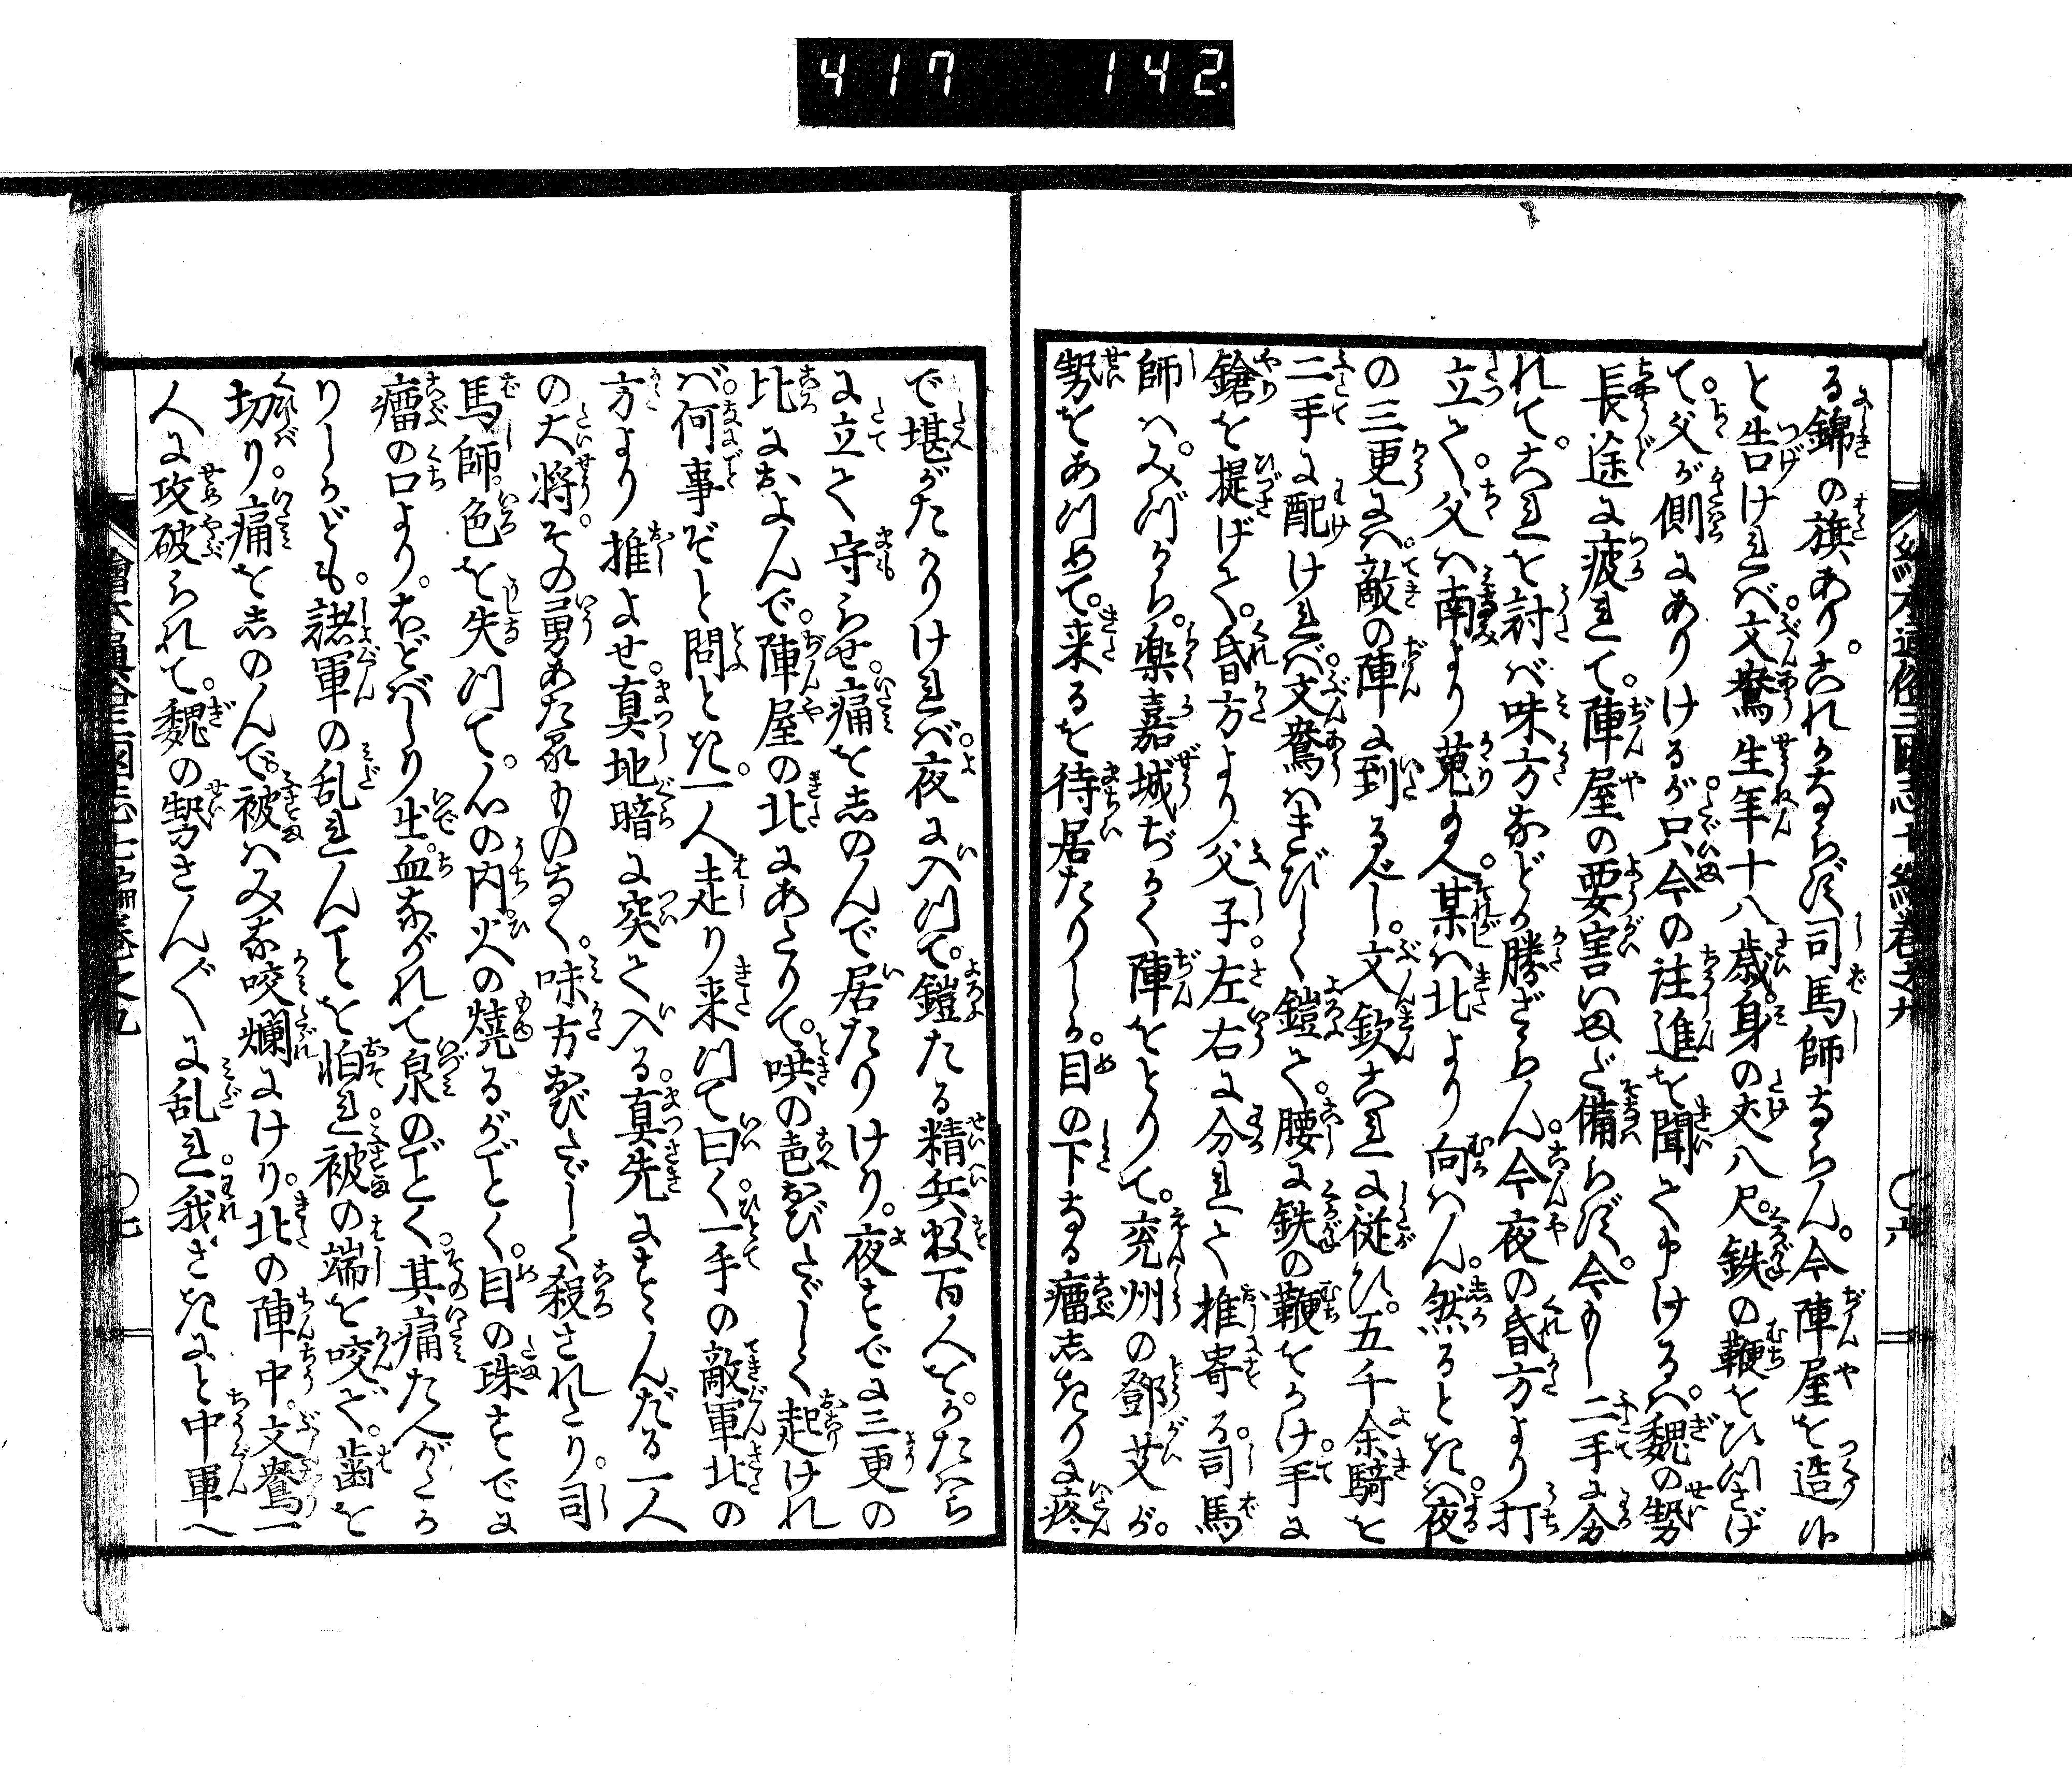 417 142
繪本通俗三國志七編卷之九 〇六
る錦の旗あり。これかならず司馬師ならん。今陣屋を造候
と告けれバ。文鴦生年十八歳。身の丈八尺。鉄の鞭をひつさげ
て。父が側にありけるが。只今の注進を聞て申けるハ。魏の勢
長途に疲れて。陣屋の要害いまだ備らず。今もし二手に分
れて。これを討バ味方などか勝ざらん。今夜の昏方より打
立て。父ハ南より蒐り入。某ハ北より向ハん。然るときハ。夜
の三更にハ。敵の陣に到るべし。文欽これに従ひ。五千余騎を
二手に配けけれバ。文鴦ハきびしく鎧て。腰に鉄の鞭をかけ。手に
鎗を提げて。昏方より父子。左右に分れて推寄る。司馬
師ハ。みづから。楽嘉城ぢかく陣をとりて。兗州の鄧艾が。
勢をあつめて。来るを待居たりしが。目の下なる瘤しきりに疼
で堪がたかりけれバ。夜に入つて。鎧たる精兵数百人を。かたハら
に立て守らせ。痛をしのんで居たりけり。夜すでに三更の
比におよんで。陣屋の北にあたりて。哄の声おびたゞしく起けれ
バ。何事ぞと問とき。一人走り来つて曰く。一手の敵軍北の
方より推よせ。真地暗に突て入る。真先にすゝんだる一人
の大将。その勇あたるものなく。味方おびたゞしく殺されたり。司
馬師。色を失つて。心の内火の焼るがごとく。目の珠すでに
瘤の口より。ほどバしり出。血ながれて泉のごとく。其痛たへがたか
りしかども。諸軍の乱れんことを怕れ。被の端を咬で。歯を
切り。痛をしのんで。被ハみな咬爛にけり。北の陣中。文鴦一
人に攻破られて。魏の勢さんざんに乱れ。我さきにと中軍へ
繪本通俗三國志七編卷之九 〇七